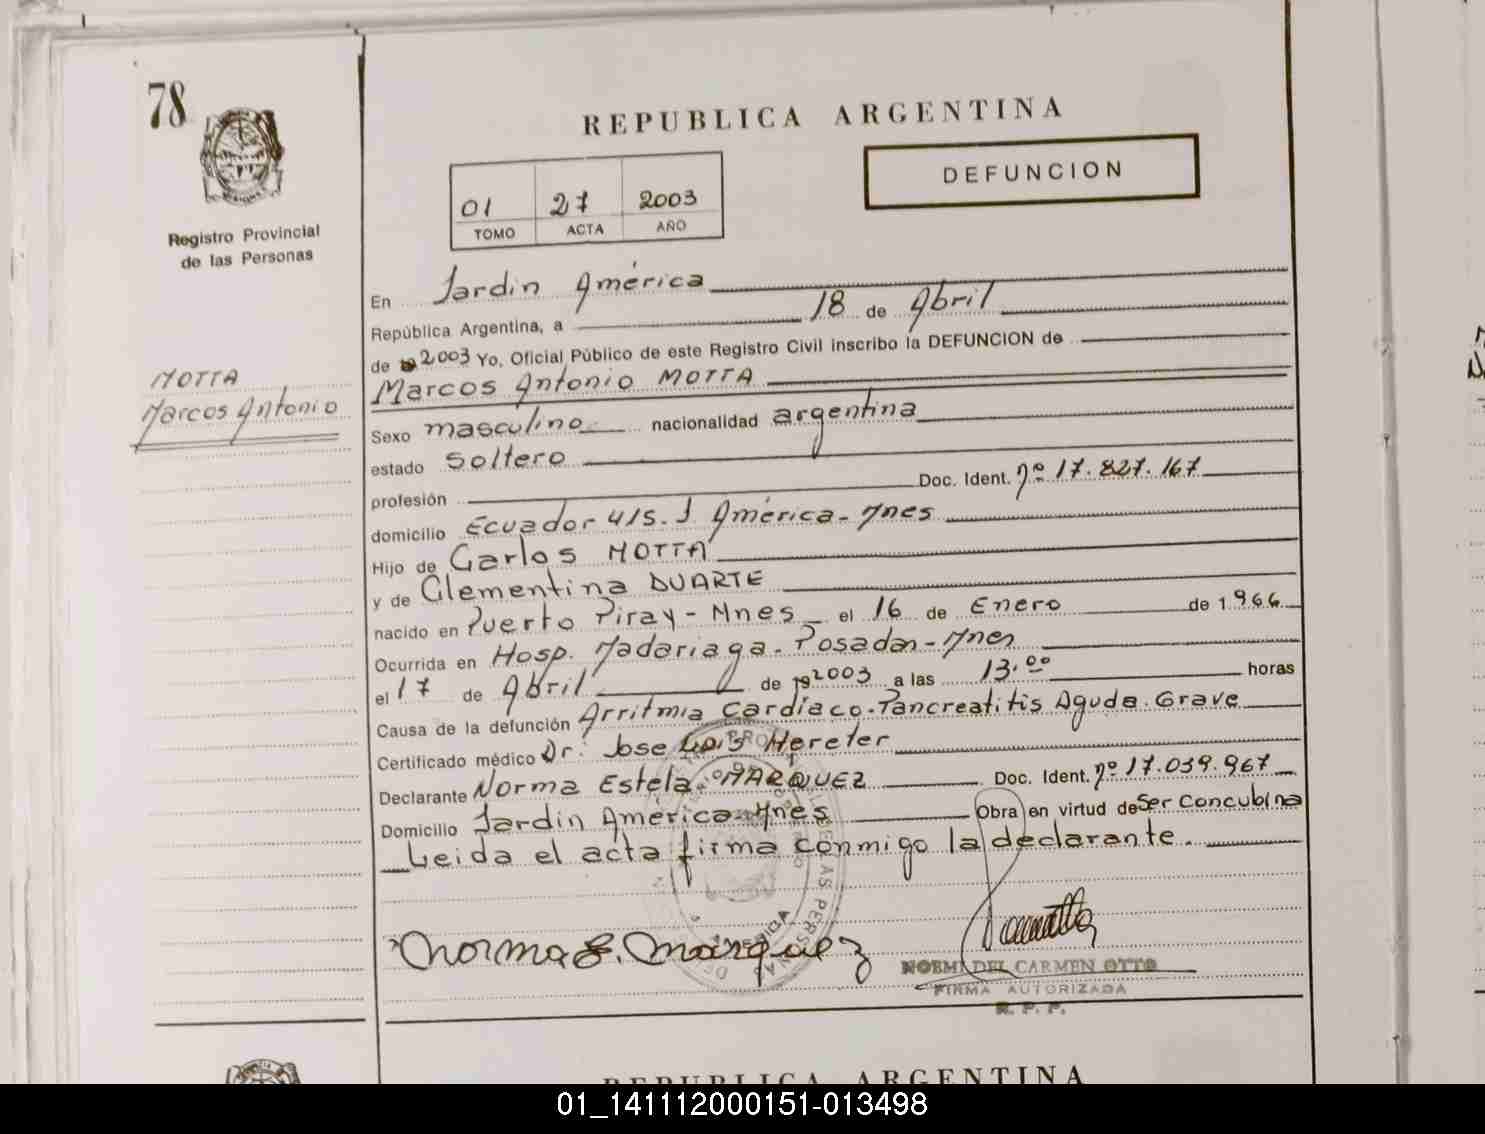 78
REPUBLICA ARGENTINA
DEFUNCION
01 27 2003
TOMO ACTA AÑO
Registro Provincial
de las Personas
MOTTA
Marcos Antonio
En Jardin América
República Argentina, a 18 de Abril
de 2003 Yo, Oficial Público de este Registro Civil inscribo la DEFUNCION de
Marcos Antonio MOTTA
Sexo masculino nacionalidad argentina
estado Soltero
Doc. Ident. nº 17.827.167
profesión
domicilio Ecuador 4/S. J América - Mnes
Hijo de Carlos MOTTA
y de Clementina DUARTE
nacido en Puerto Piray - Mnes el 16 de Enero de 1966
Ocurrida en Hosp. Madariaga - Posadas - Mnes
el 17 de Abril de 19 2003 a las 13.00 horas
Causa de la defunción Arritmia Cardiaco - Pancreatitis Aguda. Grave
Certificado médico Dr. Jose Luis Hereter
Declarante Norma Estela MARQUEZ Doc. Ident. nº 17.039.967
Domicilio Jardin América - Mnes Obra en virtud de Ser Concubina
Leida el acta firma conmigo la declarante.
Norma E. Marquez
NOEMI DEL CARMEN OTTO
FIRMA AUTORIZADA
R. P. P.
REPUBLICA ARGENTINA
01_141112000151-013498